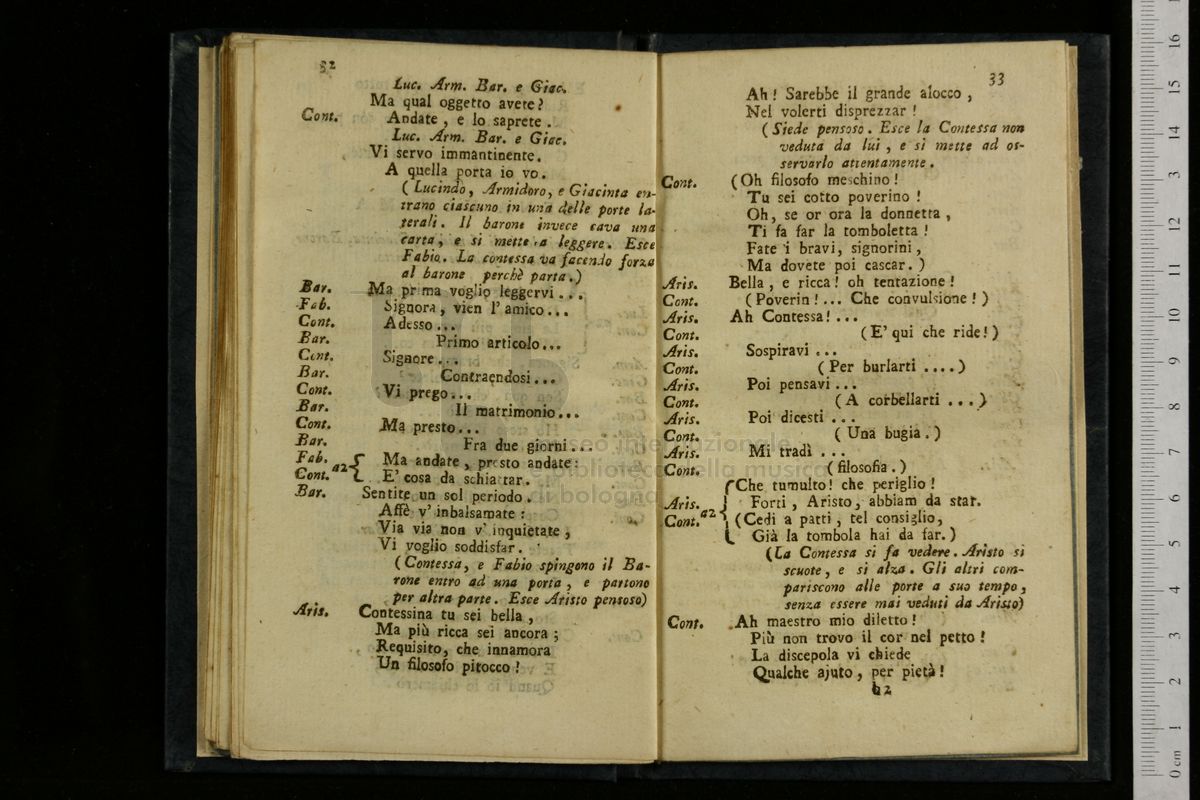 32
Luc. Arm. Bar. e Giac.
Ma qual oggetto avete?
Cont. Andate, e lo saprete.
Luc. Arm. Bar. e Giac.
Vi servo immantinente.
A quella porta io vo.
(Lucindo, Armidoro, e Giacinta en-
trano ciascuno in una delle porte la-
terali. Il barone invece cava una
carta, e si mette a leggere. Esce
Fabio. La contessa va facendo forza
al barone perchè parta.)
Bar. Ma prima voglio leggervi...
Fab. Signora, vien l'amico...
Cont. Adesso...
Bar. Primo articolo...
Cont. Signore...
Bar. Contraendosi...
Cont. Vi prego...
Bar. Il matrimonio...
Cont. Ma presto...
Bar. Fra due giorni...
Fab. Ma andate, presto andate:
Cont. a2 E' cosa da schiattar.
Bar. Sentite un sol periodo.
Affè v'inbalsamate:
Via via non v'inquietate,
Vi voglio soddisfar.
(Contessa, e Fabio spingono il Ba-
rone entro ad una porta, e partono
per altra parte. Esce Aristo pensoso)
Aris. Contessina tu sei bella,
Ma più ricca sei ancora;
Requisito, che innamora
Un filosofo pitocco!
33
Ah! Sarebbe il grande alocco,
Nel volerti disprezzar!
(Siede pensoso. Esce la Contessa non
veduta da lui, e si mette ad os-
servarlo attentamente.
Cont. (Oh filosofo meschino!
Tu sei cotto poverino!
Oh, se or ora la donnetta,
Ti fa far la tomboletta!
Fate i bravi, signorini,
Ma dovete poi cascar.)
Aris. Bella, e ricca! oh tentazione!
Cont. (Poverin!... Che convulsione!)
Aris. Ah Contessa!...
Cont. (E' qui che ride!)
Aris. Sospiravi...
Cont. (Per burlarti....)
Aris. Poi pensavi...
Cont. (A corbellarti...)
Aris. Poi dicesti...
Cont. (Una bugia.)
Aris. Mi tradì...
Cont. (filosofia.)
Che tumulto! che periglio!
Aris. Forti, Aristo, abbiam da star.
Cont. a2 (Cedi a patti, tel consiglio,
Già la tombola hai da far.)
(La Contessa si fa vedere. Aristo si
scuote, e si alza. Gli altri com-
pariscono alle porte a suo tempo,
senza essere mai veduti da Aristo)
Cont. Ah maestro mio diletto!
Più non trovo il cor nel petto!
La discepola vi chiede
Qualche ajuto, per pietà!
b2
museo internazionale
e biblioteca della musica
di bologna
0 cm 1 2 3 4 5 6 7 8 9 10 11 12 13 14 15 16